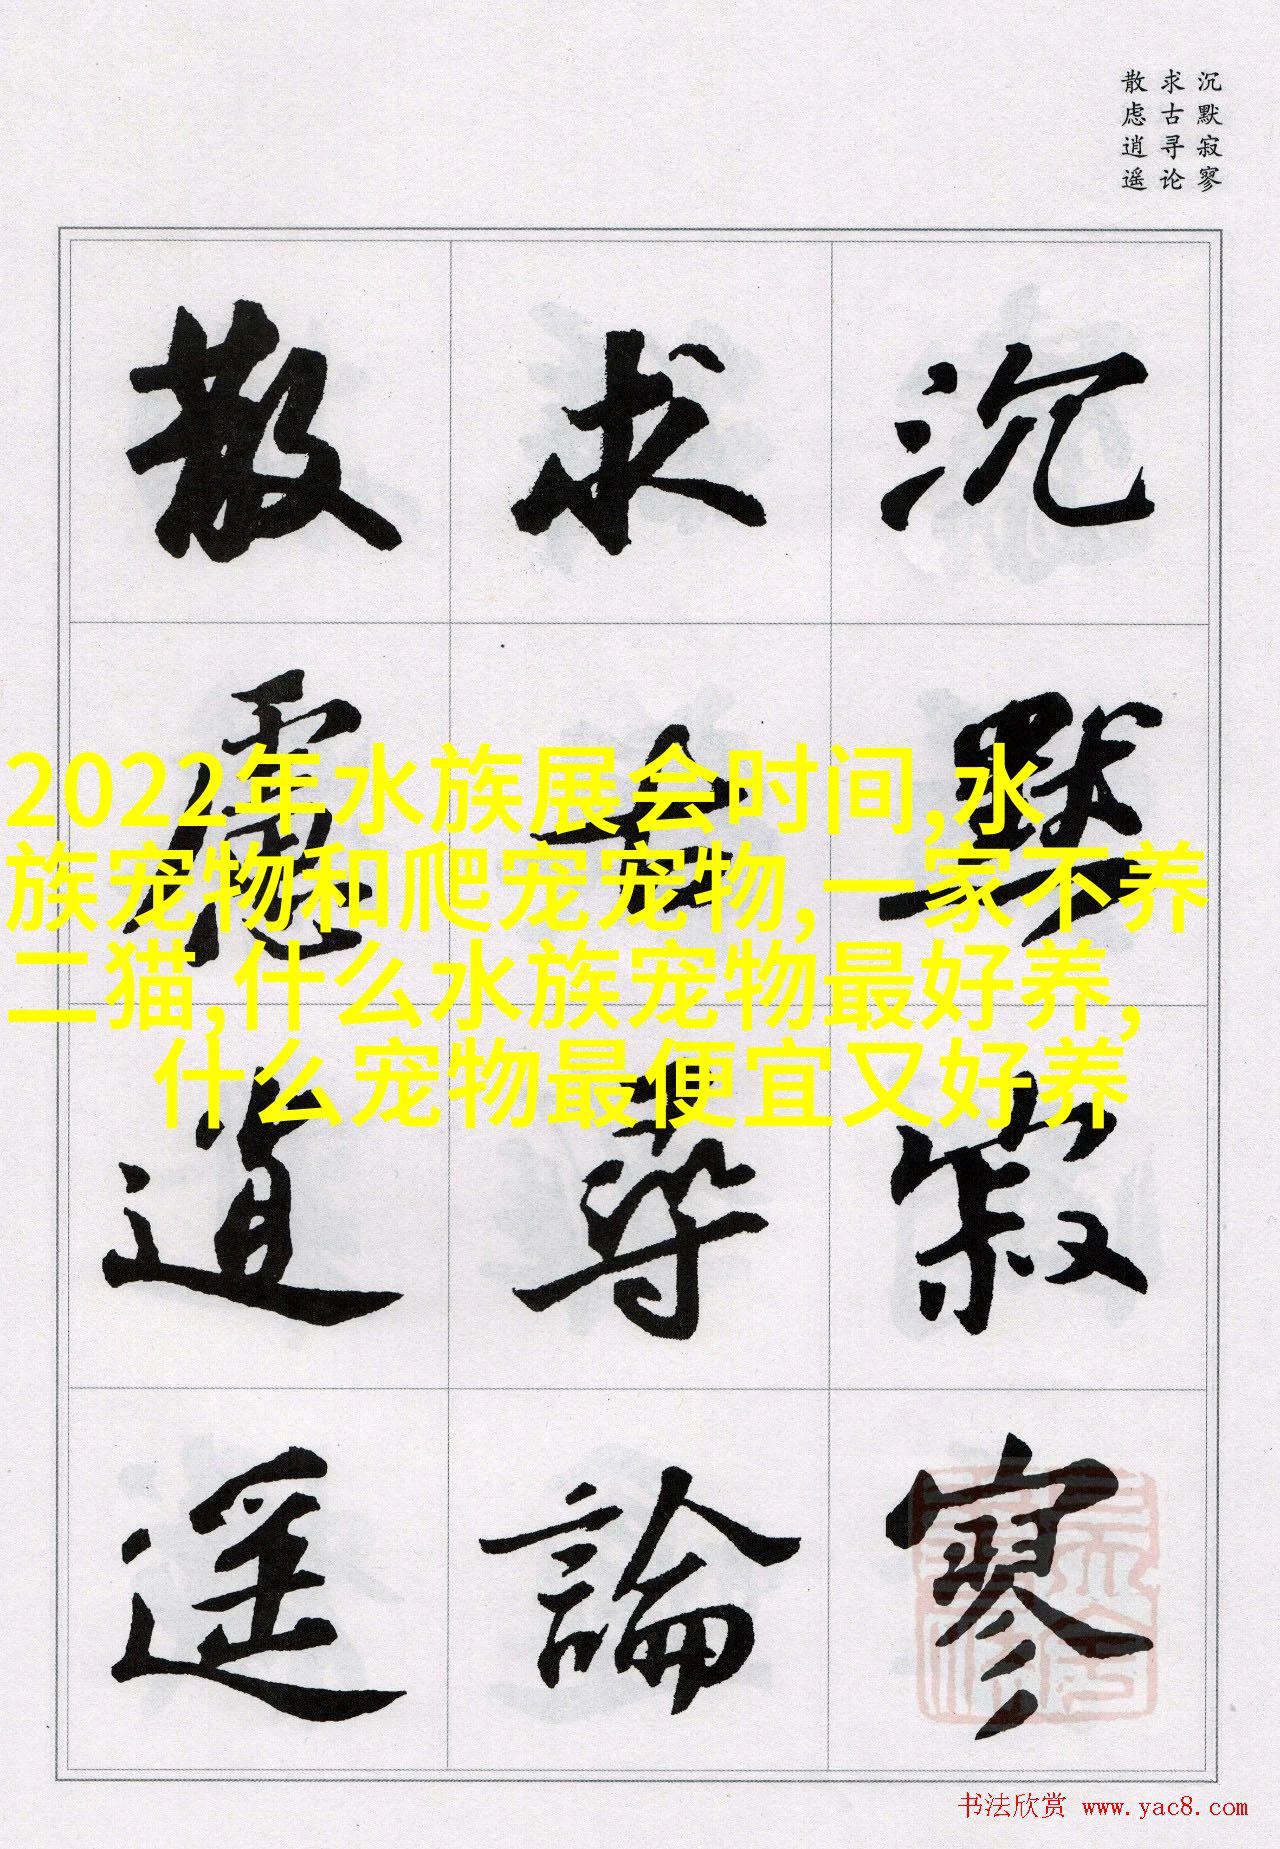 沉默寂寥
求古寻论
散虑逍遥
沉默寂寥
求古尋論
散慮逍遥
2022年水族展会时间,水
族宠物和爬宠宠物,一家不养
二猫,什么水族宠物最好养,
什么宠物最便宜又好养
书法欣赏 www.yac8.com